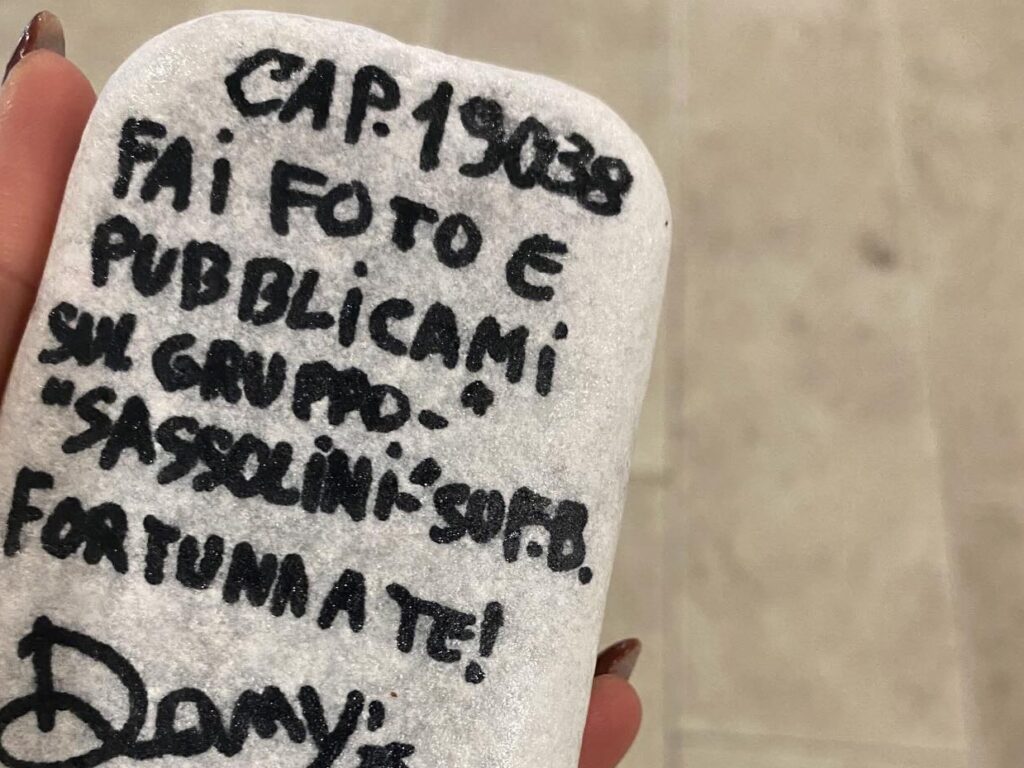 CAP. 19038
FAi FOTO E
PUBBLiCAMi
SUL GRUPPO-
"SASSOLiNi-" SU F.B.
FORTUNA A TE!
Damy